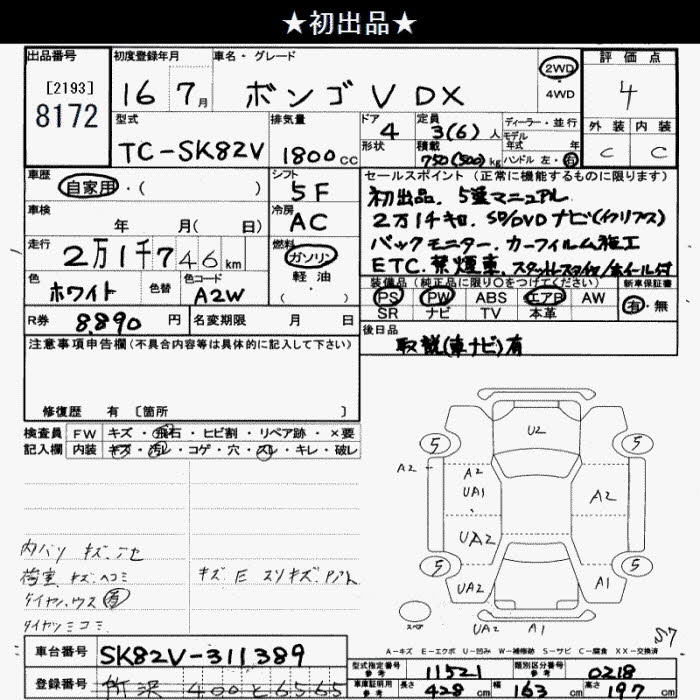 ★初出品★
出品番号 初度登録年月 車名・グレード 評価点
[2193]
8172
16 7月 ボンゴ V DX
2WD
・
4WD
4
型式 排気量 ドア 定員 ディーラー・並行 外装 内装
TC-SK82V 1800cc 4 3(6)人 モデル年式 年 C C
形状 積載 750(500)kg ハンドル 左・右
車歴 シフト セールスポイント(正常に機能するものに限ります)
自家用・( ) 5F 初出品. 5速マニュアル
車検 冷房
年 月(日) AC 2万1千キロ. SD/DVDナビ(イクリプス)
走行 燃料 バックモニター. カーフィルム施工
2万1千746km ガソリン・軽油・( ETC. 禁煙車. スタッドレスタイヤ/ホイール付
色 色替 色コード 装備品(純正品に限り〇をつけてください) 新車保証書
ホワイト A2W PS PW ABS エアB AW 有・無
SR ナビ TV 本革
R券 8,890円 名変期限 月 日 後日品
取説(車ナビ)有
注意事項申告欄(不具合内容等は具体的に記入して下さい)
修復歴 有 〔箇所 〕
検査員 FW キズ・飛石・ヒビ割・リペア跡・×要
記入欄 内装 キズ・汚レ・コゲ・穴・スレ・キレ・破レ
U2
5 5
A2 A2
UA1 A2
UA2
5 5
UA2 A1
内ハリ キズ.
荷室 キズ.ヘコミ キズ E スリキズ.
有
スペア
UA2 A1
S7
A-キズ E-エクボ U-凹み W-補修跡 S-サビ C-腐食 XX-交換済
車台番号 SK82V-311389
型式指定番号 参考 11521 類別区分番号 参考 0218
登録番号 所沢 400 と 6565 車庫証明用 参考 長さ 428cm 幅 163cm 高さ 197cm